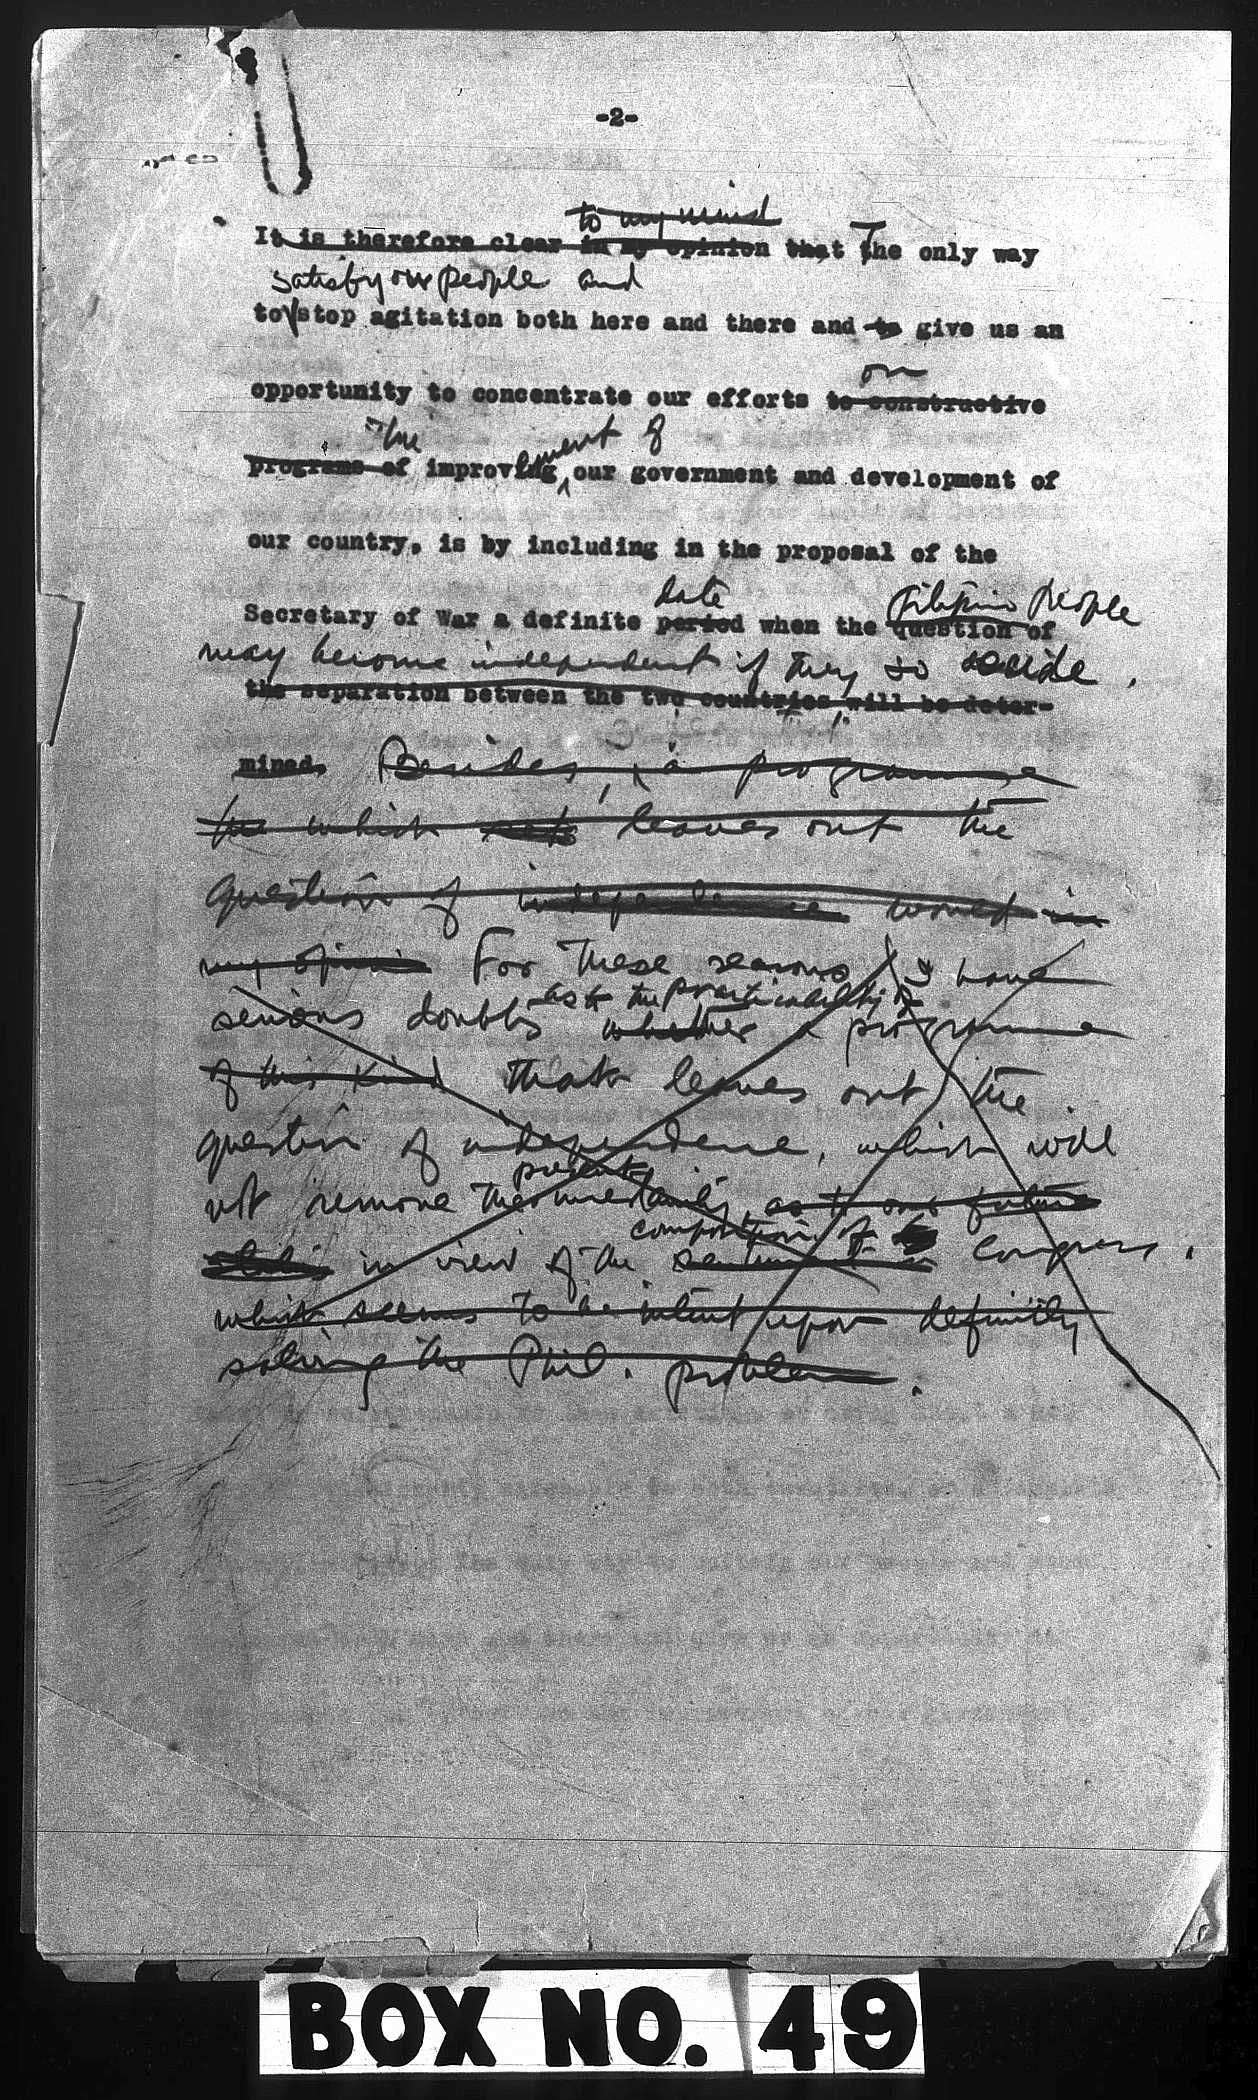 -2-
to my mind
It is therefore clear in my opinion that The only way
satisfy our people and
to stop agitation both here and there and to give us an
on
opportunity to concentrate our efforts to constructive
the ement of
programs of improving our government and development of
our country, is by including in the proposal of the
date Filipino people
Secretary of War a definite period when the question of
may become independent if they so decide.
the separation between the two countries will be deter-
mined. Besides, a programme
the which leaves out the
question of independence would in
my opinion For these reasons I have
as to the practicability of
serious doubts whether a programme
of this kind that leaves out the
question of independence, which will
present
not remove the uncertainty, as to our future
composition of
status in view of the sentiment in Congress.
which seems to be intent upon definitly
solving the Phil. problem.
BOX NO. 49